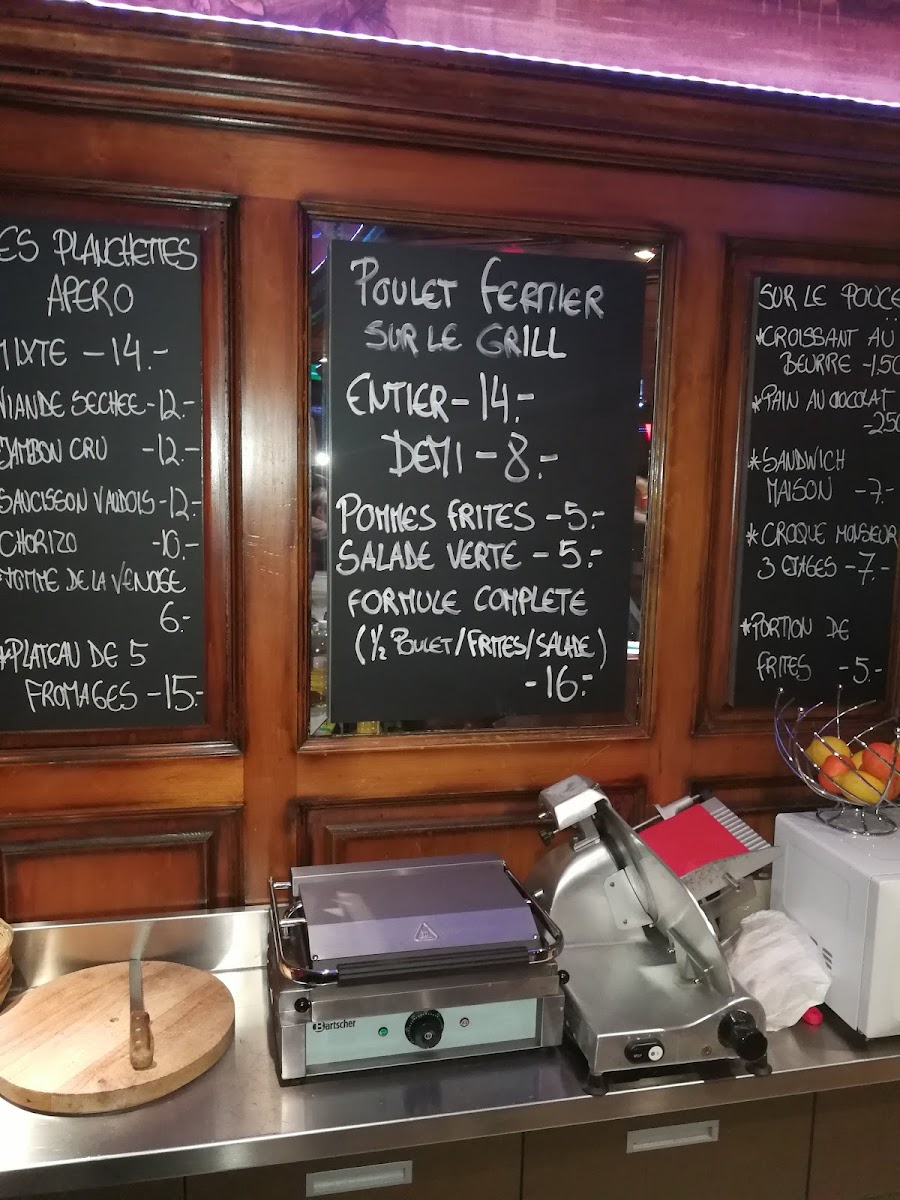 ES PLANCHETTES
APERO
MIXTE - 14.-
VIANDE SECHEE - 12.-
JAMBON CRU - 12.-
SAUCISSON VAUDOIS - 12.-
CHORIZO - 10.-
*TOMME DE LA VENOGE
6.-
*PLATEAU DE 5
FROMAGES - 15.-
POULET FERMIER
SUR LE GRILL
ENTIER - 14.-
DEMI - 8.-
POMMES FRITES - 5.-
SALADE VERTE - 5.-
FORMULE COMPLETE
(1/2 POULET/FRITES/SALADE)
- 16.-
SUR LE POUCE
*CROISSANT AU
BEURRE - 1.50
*PAIN AU CHOCOLAT
- 250
*SANDWICH
MAISON - 7.-
*CROQUE MONSIEUR
3 ETAGES - 7.-
*PORTION DE
FRITES - 5.-
Bartscher